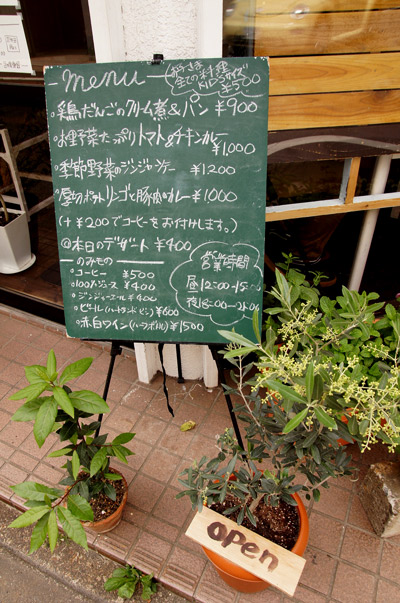 menu
お子さま
全ての料理
KIDSサイズ
¥500
・鶏だんごのクリーム煮&パン ¥900
・お野菜たっぷりトマト&チキンカレー
¥1,000
・季節野菜のジンジャー ¥1200
・厚切ポテトリンゴと豚肉のカレー ¥1,000
(+¥200でコーヒーをお付けします。)
@本日のデザート ¥400
のみもの
コーヒー ¥500
100%ジュース ¥400
ジンジャーエール ¥400
ビール(ハートランドビン) ¥600
赤白ワイン(ハーフボトル) ¥1500
営業時間
昼 12:00-15:00
夜 18:00-
open